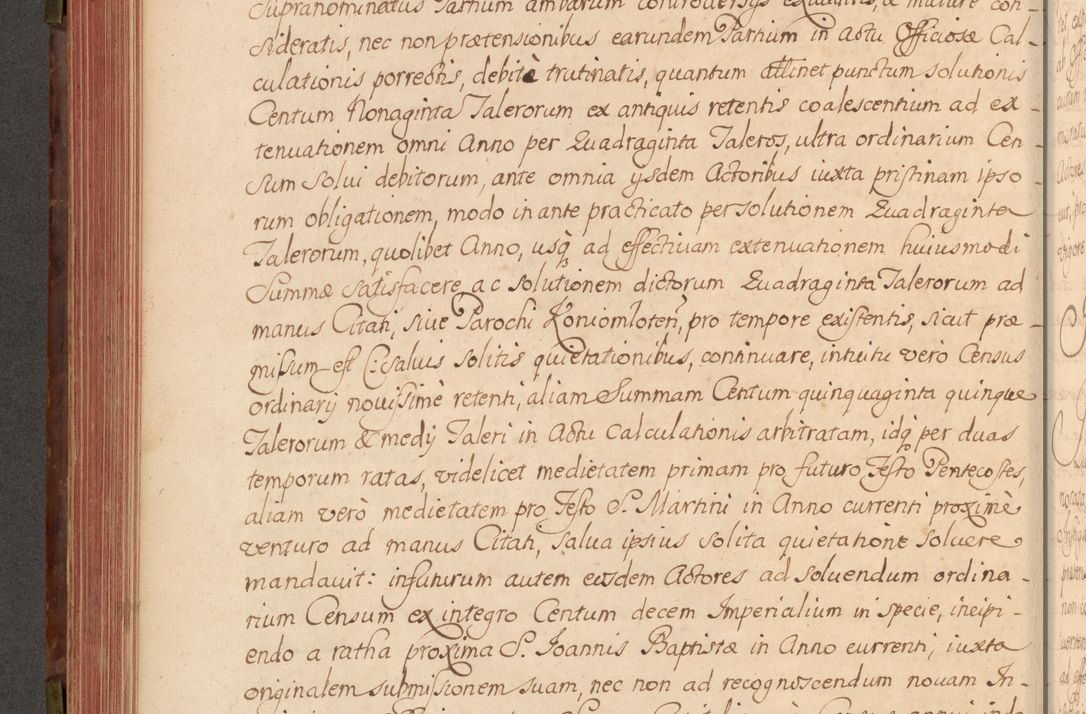 Supranominatus Partium ambarum controversijs exauditis, & mature con-
sideratis, nec non prætensionibus earundem Partium in actu Officiosæ Cal-
culationis porrectis, debitè trutinatis, quantum attinet punctum solutionis
Centum Nonaginta Talerorum ex antiquis retentis coalescentium ad ex-
tenuationem omni Anno per Quadraginta Taleros, ultra ordinarium Cen
sum Solui debitorum, ante omnia ysdem Actoribus iuxta pristinam ipso
rum obligationem, modo in ante practicato persolutionem Quadraginta
Talerorum, quolibet Anno, usq₃ ad effectiuam extenuationem huiusmodi
Summæ satisfacere, ac solutionem dictorum Quadraginta Talerorum ad
manus Citati, siue Parochi Koniomloten̄, pro tempore existentis, sicut præ-
missum est salvis solitis quietationibus, continuare, intuitu verò Census
ordinarij novissimè retenti, aliam Summam Centum quinquaginta quinque
Talerorum & medij Taleri in Actu Calculationis arbitratam, idq₃ per duas
temporum ratas, videlicet medietatem primam pro futuro Festo Pentecostes,
aliam verò medietatem pro Festo S. Martini in Anno currenti proximè
venturo ad manus Citati, salua ipsius solita quietatione Soluere
mandauit: infuturum autem eosdem Actores ad soluendum ordina-
rium Censum ex integro Centum decem Imperialium in specie, incipi-
endo a ratha proxima S. Joannis Baptistæ in Anno currenti, iuxta
originalem submissionem suam, nec non ad recognoscendum nouam In-